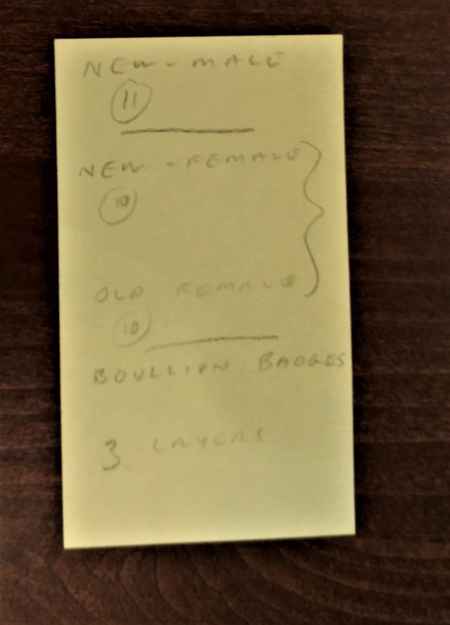 NEW - MALE
11
NEW - FEMALE
10
OLD FEMALE
10
BOULLION BADGES
3 LAYERS